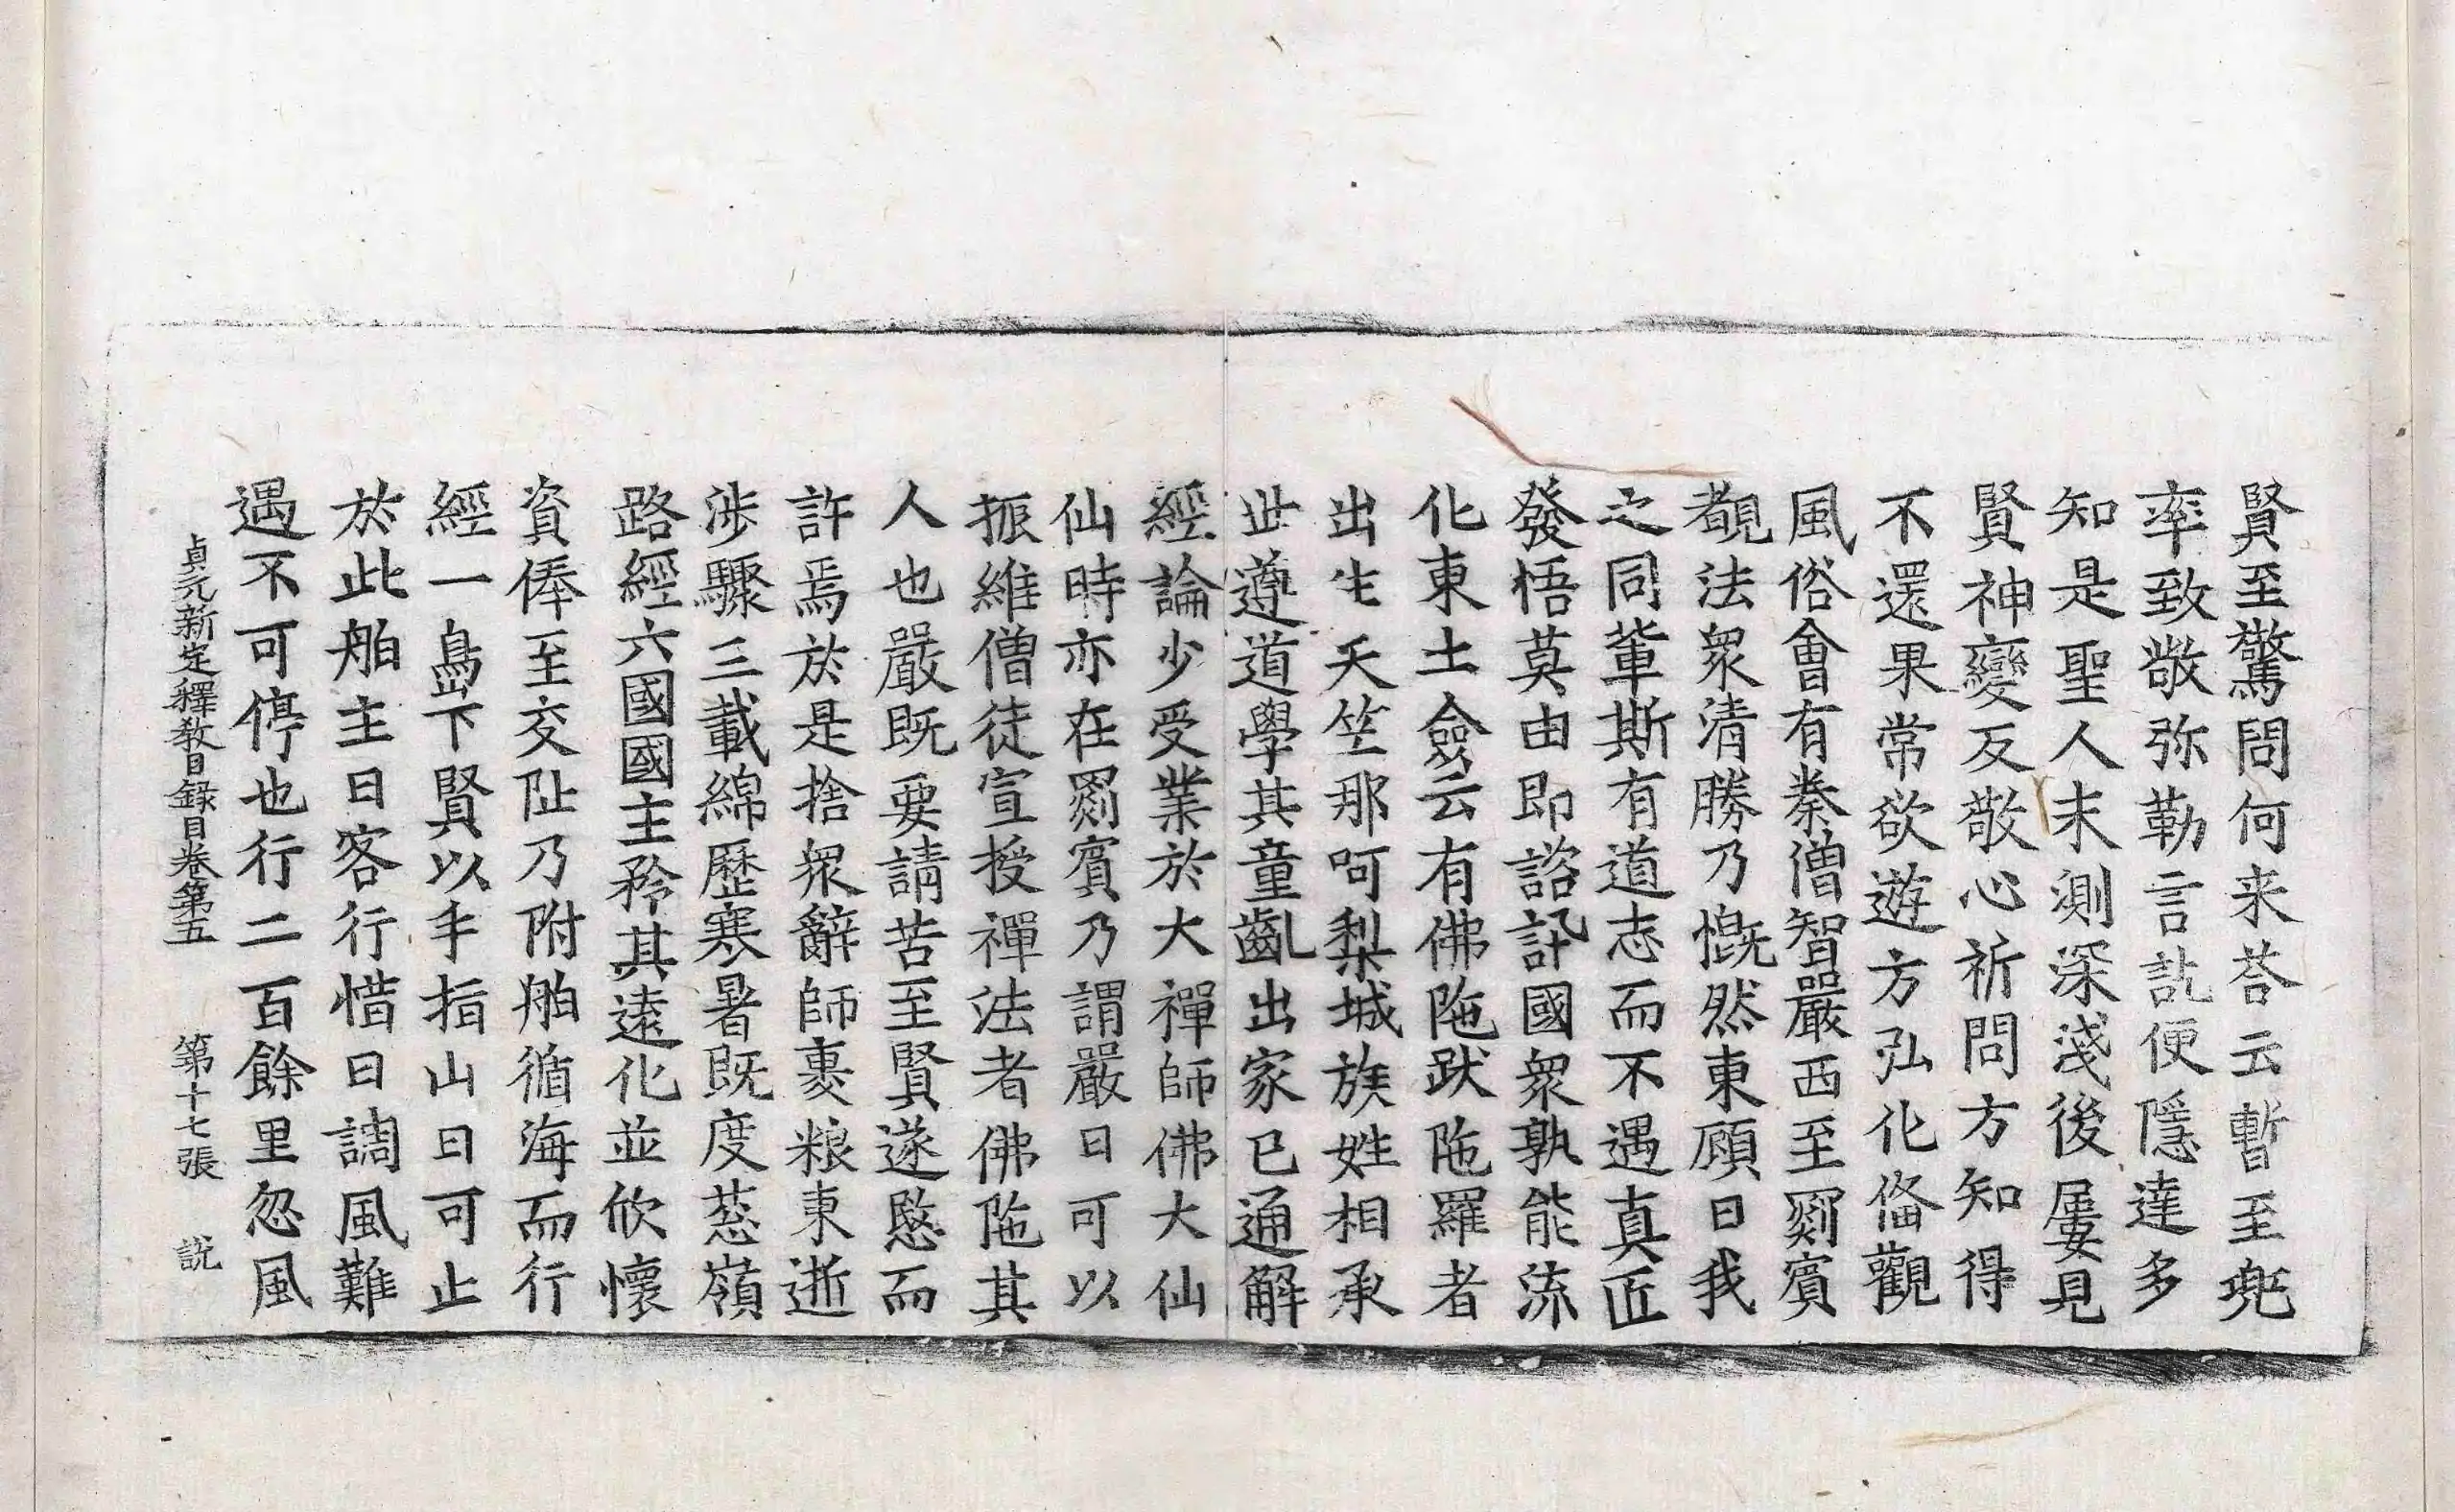 賢至驚問何来荅云暫至兠
率致敬弥勒言訖便隱達多
知是聖人未測深淺後屢見
賢神變乃敬心祈問方知得
不還果常欲遊方弘化俻觀
風俗會有秦僧智嚴西至罽賓
覩法衆清勝乃慨然東顧曰我
之同軰斯有道志而不遇真匠
發悟莫由即諮訊國衆孰能流
化東土僉云有佛陁跋陁羅者
出生天竺那呵梨城族姓相承
丗遵道學其童齓出家已通解
經論少受業於大禪師佛大仙
仙時亦在罽賓乃謂嚴曰可以
振維僧徒宣授禪法者佛陁其
人也嚴既要請苦至賢遂愍而
許焉於是捨衆辭師裹粮東逝
涉驟三載綿歷寒暑既度葱嶺
路經六國國主矜其遠化並欣懷
資俸至交阯乃附舶循海而行
經一㠀下賢以手指山曰可止
於此舶主曰客行惜日調風難
遇不可停也行二百餘里忽風
貞元新定釋教目録目卷第五 第十七張 説